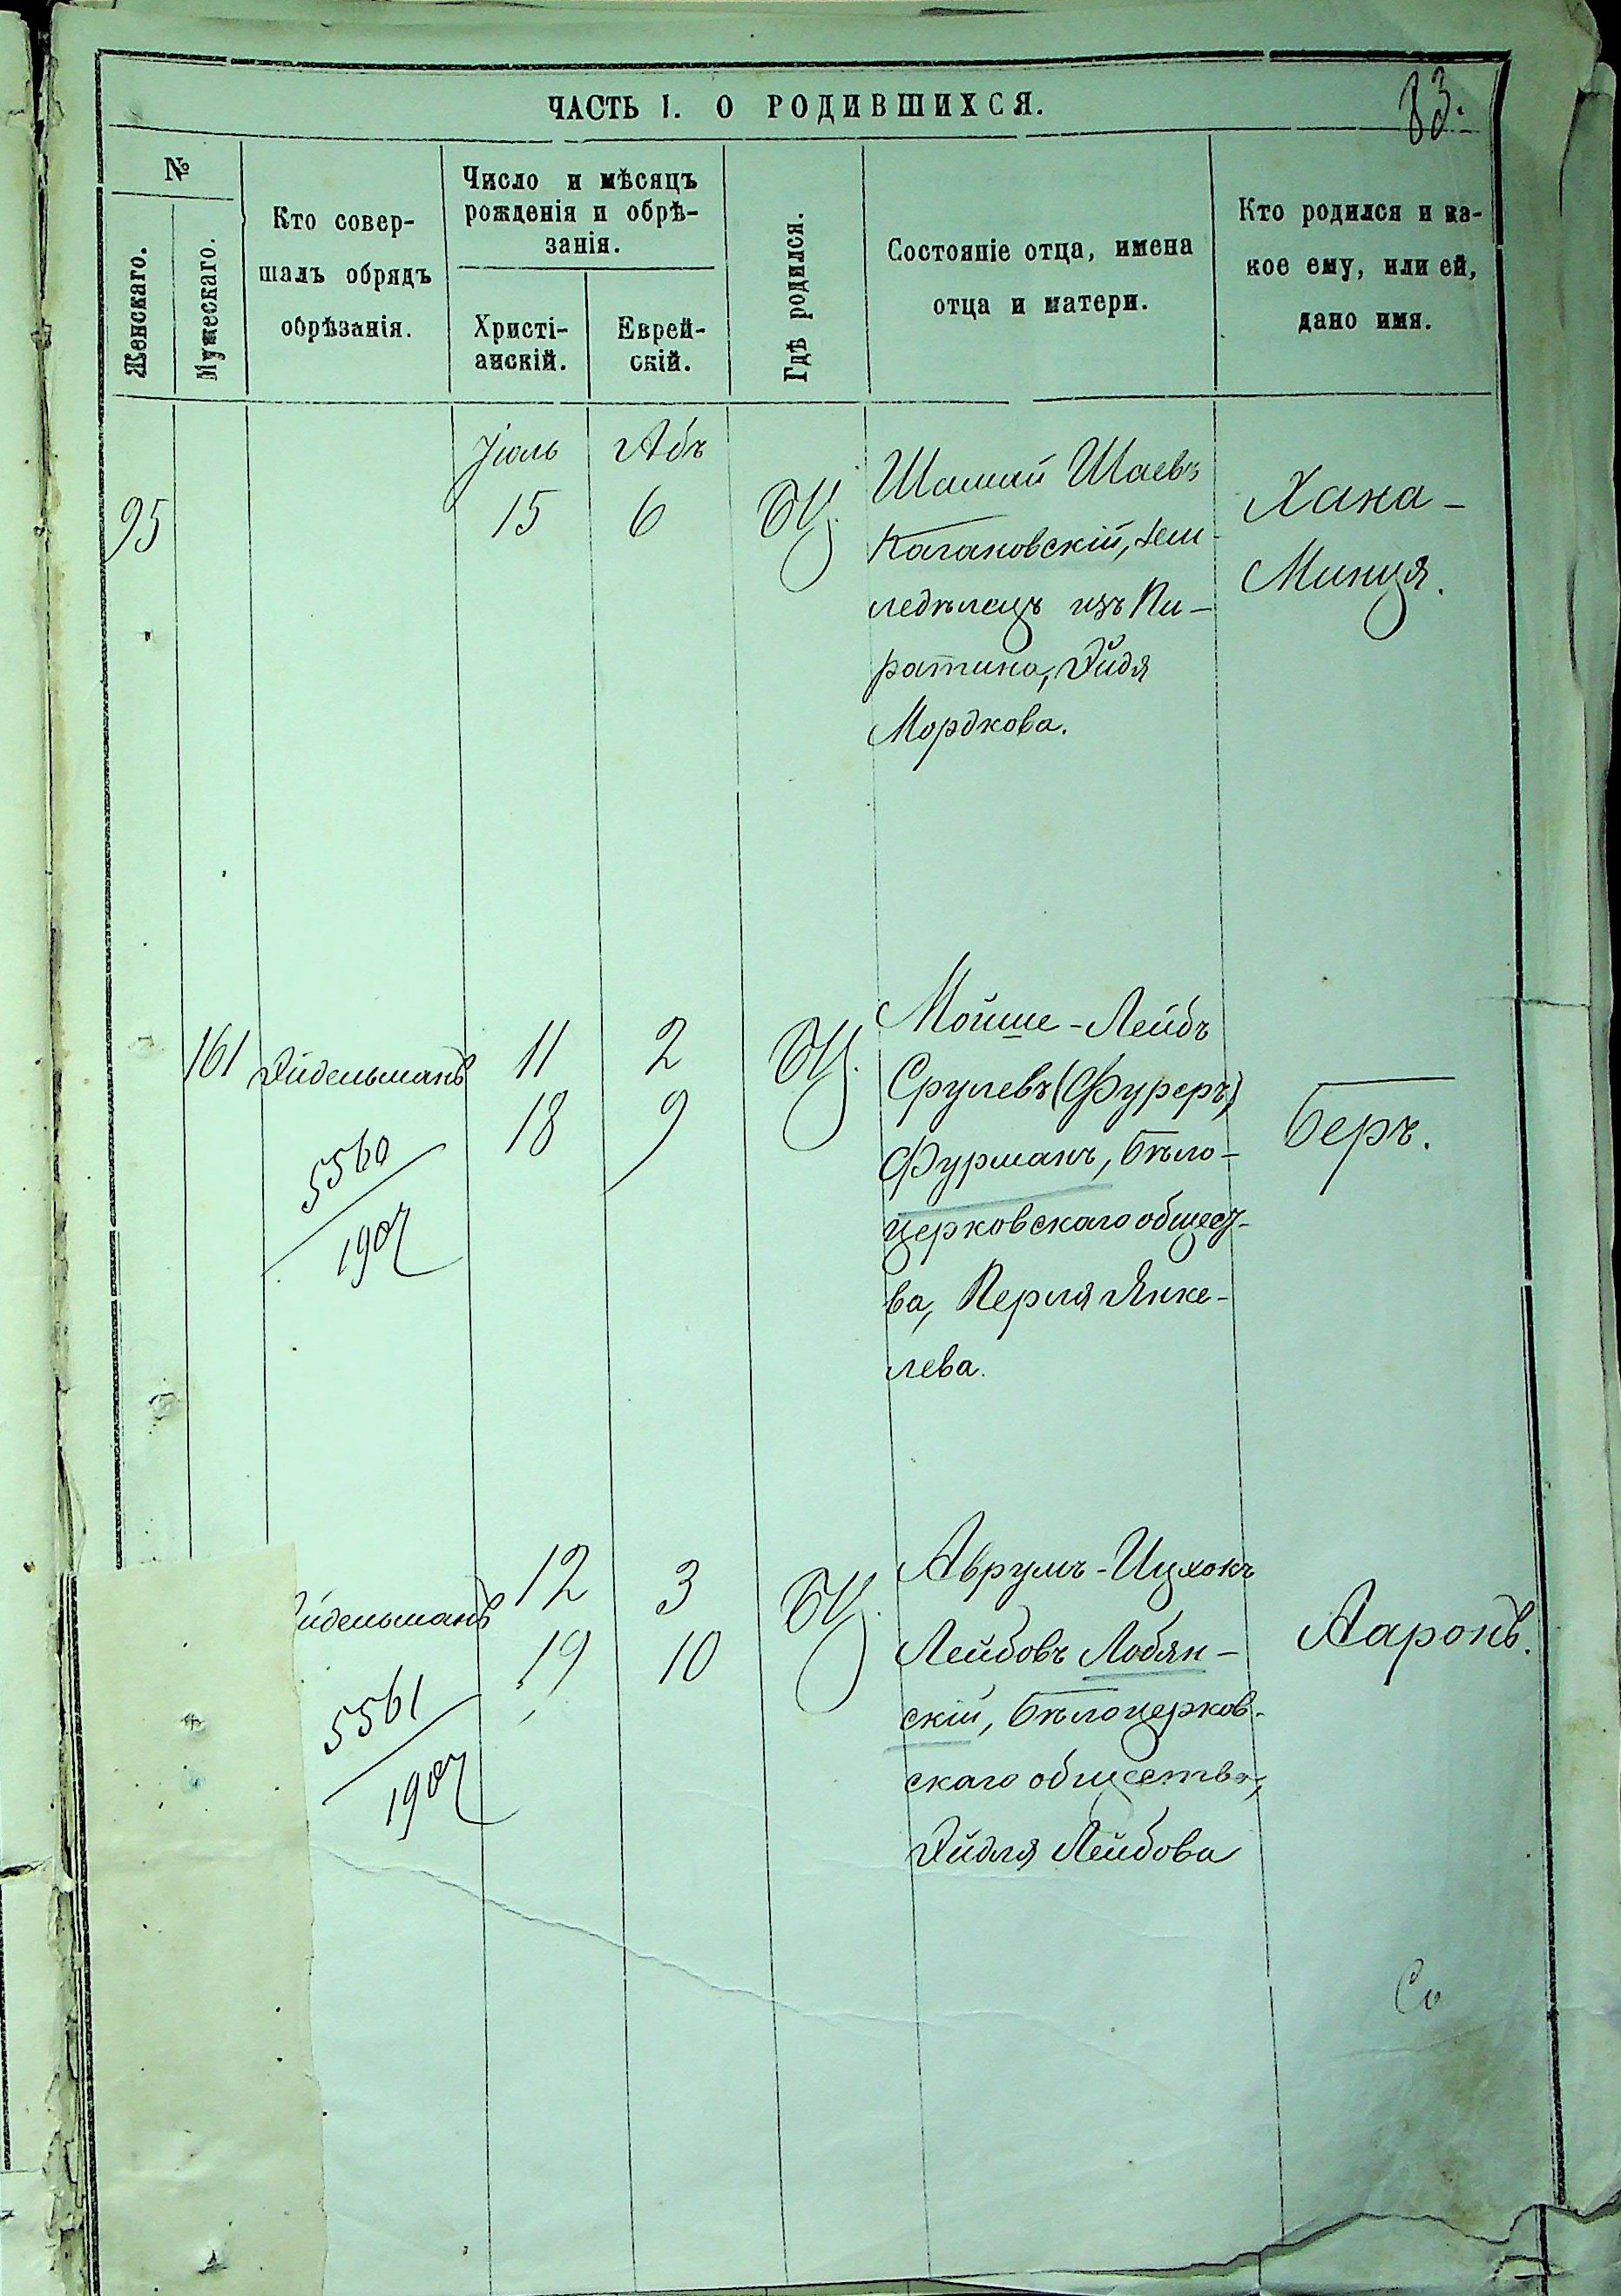 ЧАСТЬ I. О РОДИВШИХСЯ.
83.
№
Женскаго.
Мужескаго.
Кто совер-
шалъ обрядъ
обрѣзанія.
Число и мѣсяцъ
рожденія и обрѣ-
занія.
Христі-
анскій.
Еврей-
скій.
Гдѣ родился.
Состояніе отца, имена
отца и матери.
Кто родился и ка-
кое ему, или ей,
дано имя.
Іюль Абъ
95 15 6 БЦ.
Шамай Шаевъ
Кагановскій, зем-
ледѣлецъ изъ Пи-
ратина, Эйдя
Мордкова.
Хана-
Минця.
161 Эйдельманъ 11 2 БЦ.
18 9
5560
1907
Мойше-Лейбъ
Срулевъ (Фуреръ)
Фурманъ, бѣло-
церковскаго общест-
ва, Перля Янке-
лева.
Беръ.
йдельманъ 12 3 БЦ.
19 10
5561
1907
Аврумъ-Ицхокъ
Лейбовъ Лобян-
скій, бѣлоцерков-
скаго общества,
Эйдля Лейбова
Ааронъ.